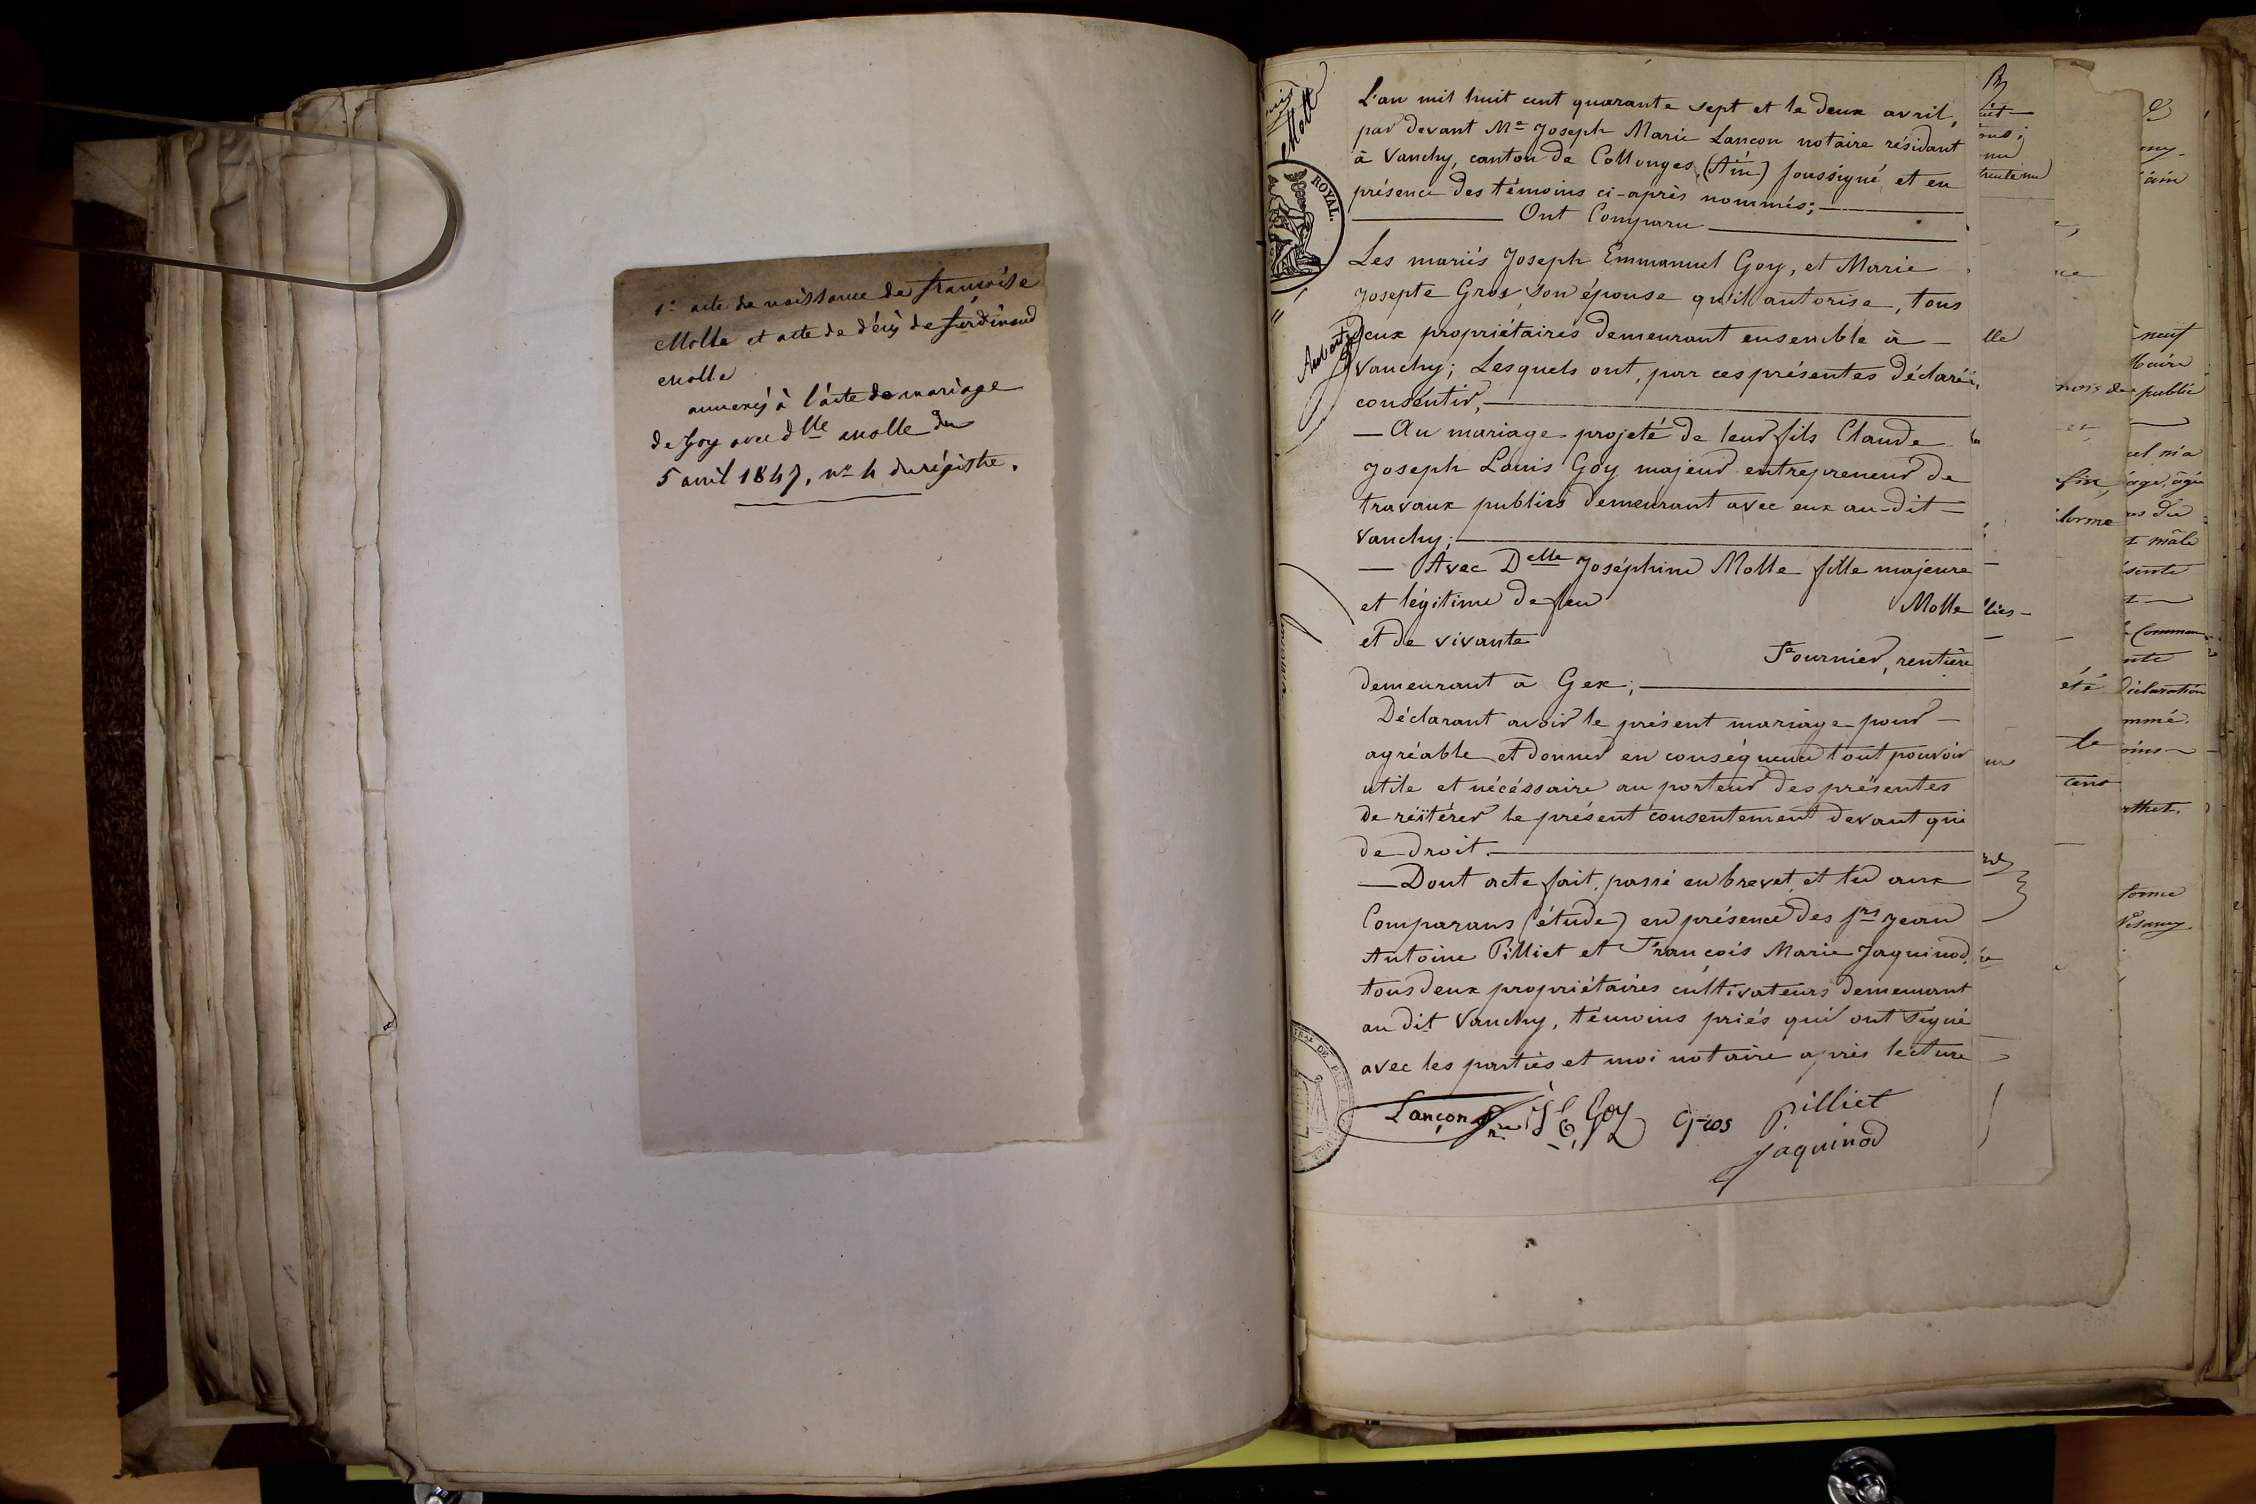 1° acte de naissance de françoise
Molle et acte de décès de ferdinand
Molle
annexés à l'acte de mariage
de Goy avec dlle Molle du
5 avril 1847, n° 4 du régistre.
Molle
ROYAL.
L'an mil huit cent quarante sept et le deux avril,
par devant Me Joseph Marie Lançon notaire résidant
à Vanchy, canton de Collonges (Ain) soussigné, et en
présence des témoins ci-après nommés;
Ont Comparu
Les mariés Joseph Emmanuel Goy, et Marie
Josepte Gros son épouse qu'il autorise, tous
deux propriétaires demeurant ensemble à
Vanchy; Lesquels ont, par ces présentes déclaré
consentir,
Au mariage projeté de leur fils Claude
Joseph Louis Goy majeur entrepreneur de
travaux publics demeurant avec eux au-dit
Vanchy;
Avec Delle Joséphine Molle fille majeure
et légitime de feu Molle
et de vivante
Fournier, rentière
demeurant à Gex;
Déclarant avoir le présent mariage pour
agréable et donner en conséquence tout pouvoir
utile et nécéssaire au porteur des présentes
de réïtérer le présent consentement devant qui
de droit.
Dont acte fait, passé en brevet, et lu aux
Comparans (étude) en présence des srs Jean
Antoine Pilliet et François Marie Jaquinod,
tous deux propriétaires cultivateurs demeurant
au dit Vanchy, témoins priés qui ont signé
avec les parties et moi notaire après lecture
Lançon
J E Goy
Gros
Pilliet
Jaquinod